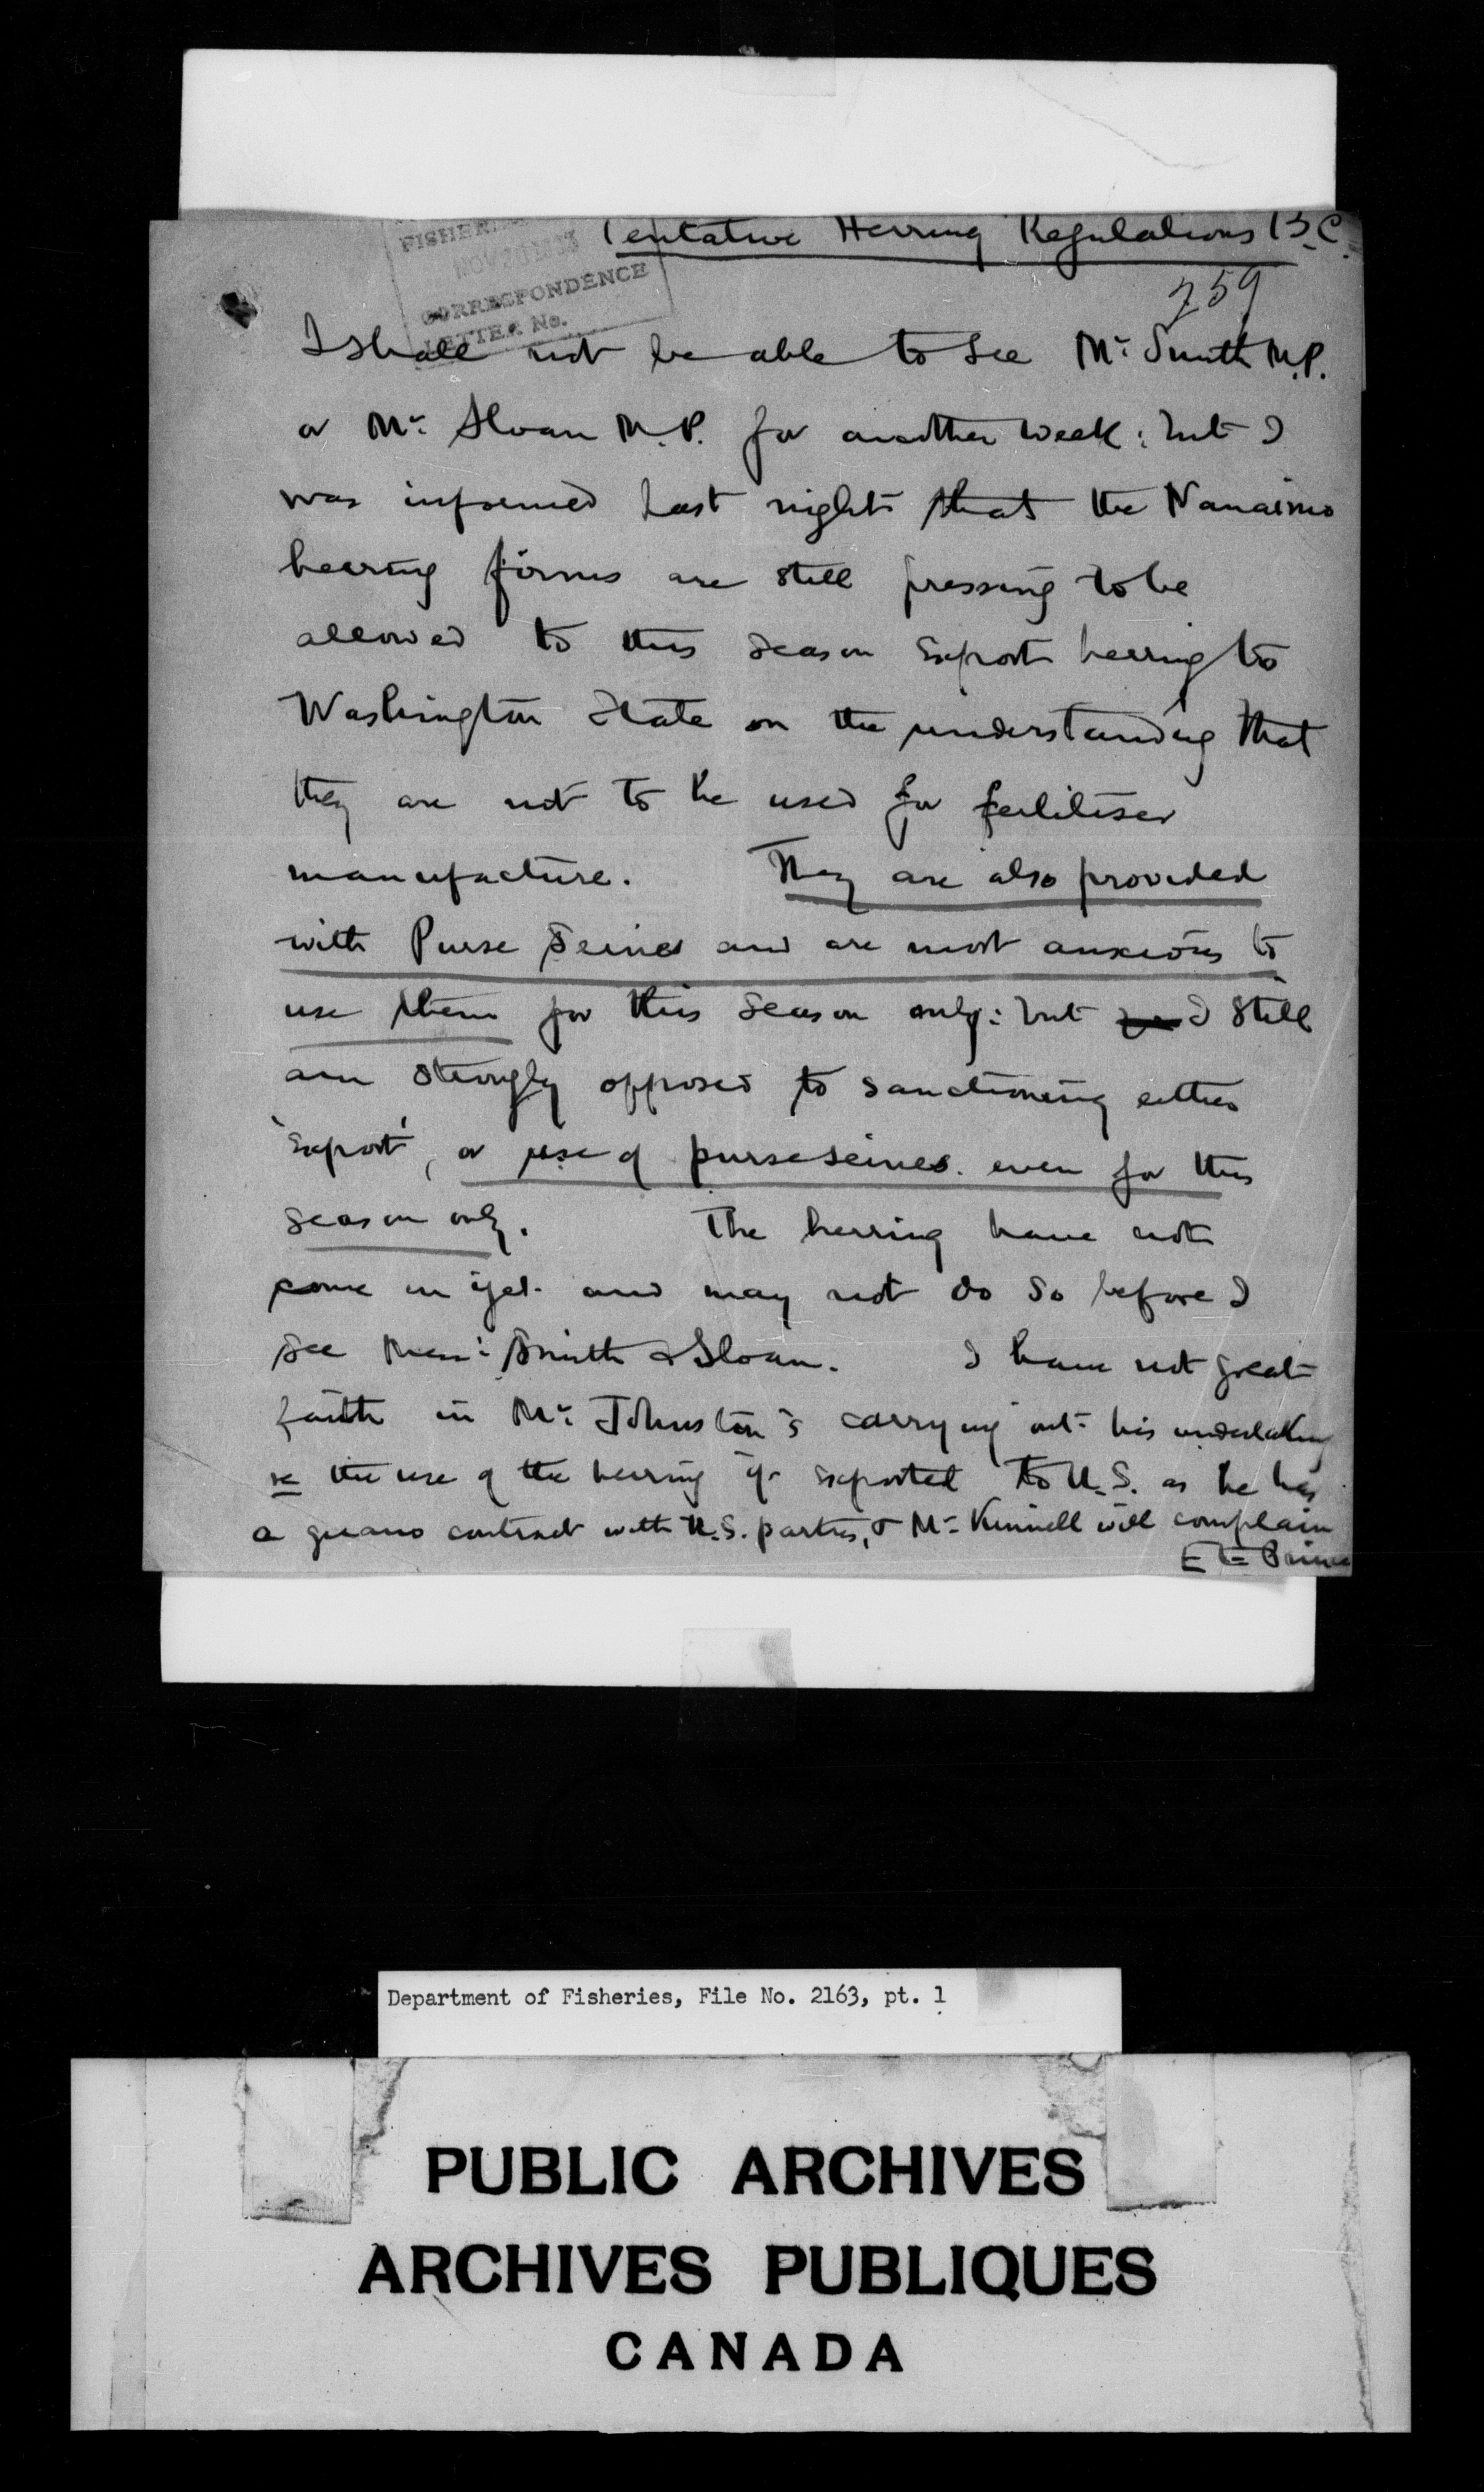 Tentative Herring Regulations B.C.
FISHERIES
NOV 20
CORRESPONDENCE
LETTER No.
259
I shall not be able to see Mr. Smith M.P.
or Mr. Sloan M.P. for another week: but I
was informed last night that the Nanaimo
herring firms are still pressing to be
allowed to this season export herring to
Washington State on the understanding that
they are not to be used for fertiliser
manufacture. They are also provided
with Purse Seines and are most anxious to
use them for this season only: but I still
am strongly opposed to sanctioning either
'export', or use of purse seines. even for this
season only. The herring have not
come in yet and may not do so before I
see Messrs Smith & Sloan. I have not great
faith in Mr. Johnston's carrying out his undertaking
re the use of the herring if exported to U.S. as he has
a guano contract with U.S. parties, & Mr. Kinnell will complain
E E Prince
Department of Fisheries, File No. 2163, pt. 1
PUBLIC ARCHIVES
ARCHIVES PUBLIQUES
CANADA